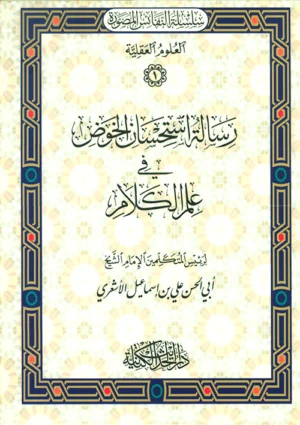 سلسلة النفائس المصورة
العلوم العقلية
١
رسالة استحسان الخوض
في
علم الكلام
لرئيس المتكلمين الإمام الشيخ
أبي الحسن علي بن إسماعيل الأشعري